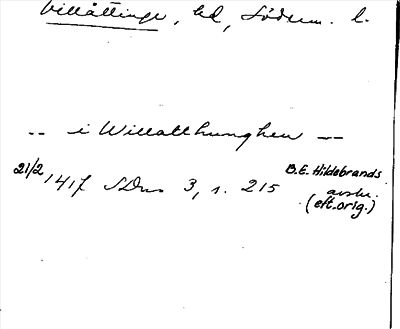 Villåttinge, hd, Söderm. l.
-- i Willatthunghen --
21/2 1417 SDns 3, s. 215 B.E. Hildebrands
avskr.
(eft. orig.)